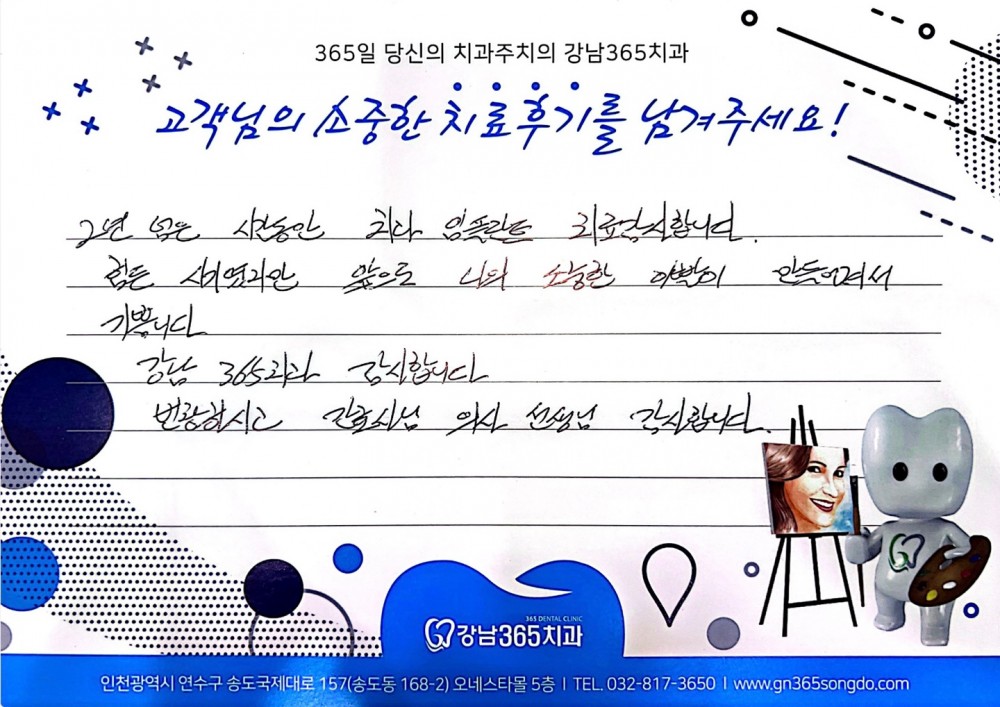 365일 당신의 치과주치의 강남365치과
고객님의 소중한 치료후기를 남겨주세요!
2년 넘은 시간동안 치과 임플란트 치료감사합니다.
힘든 앞으로 나의 소중한 이빨이 만들어져서
기쁩니다
강남 365치과 감사합니다
간호사님 의사 선생님 감사합니다.
365 DENTAL CLINIC
강남365치과
인천광역시 연수구 송도국제대로 157(송도동 168-2) 오네스타몰 5층 | TEL. 032-817-3650 | www.gn365songdo.com